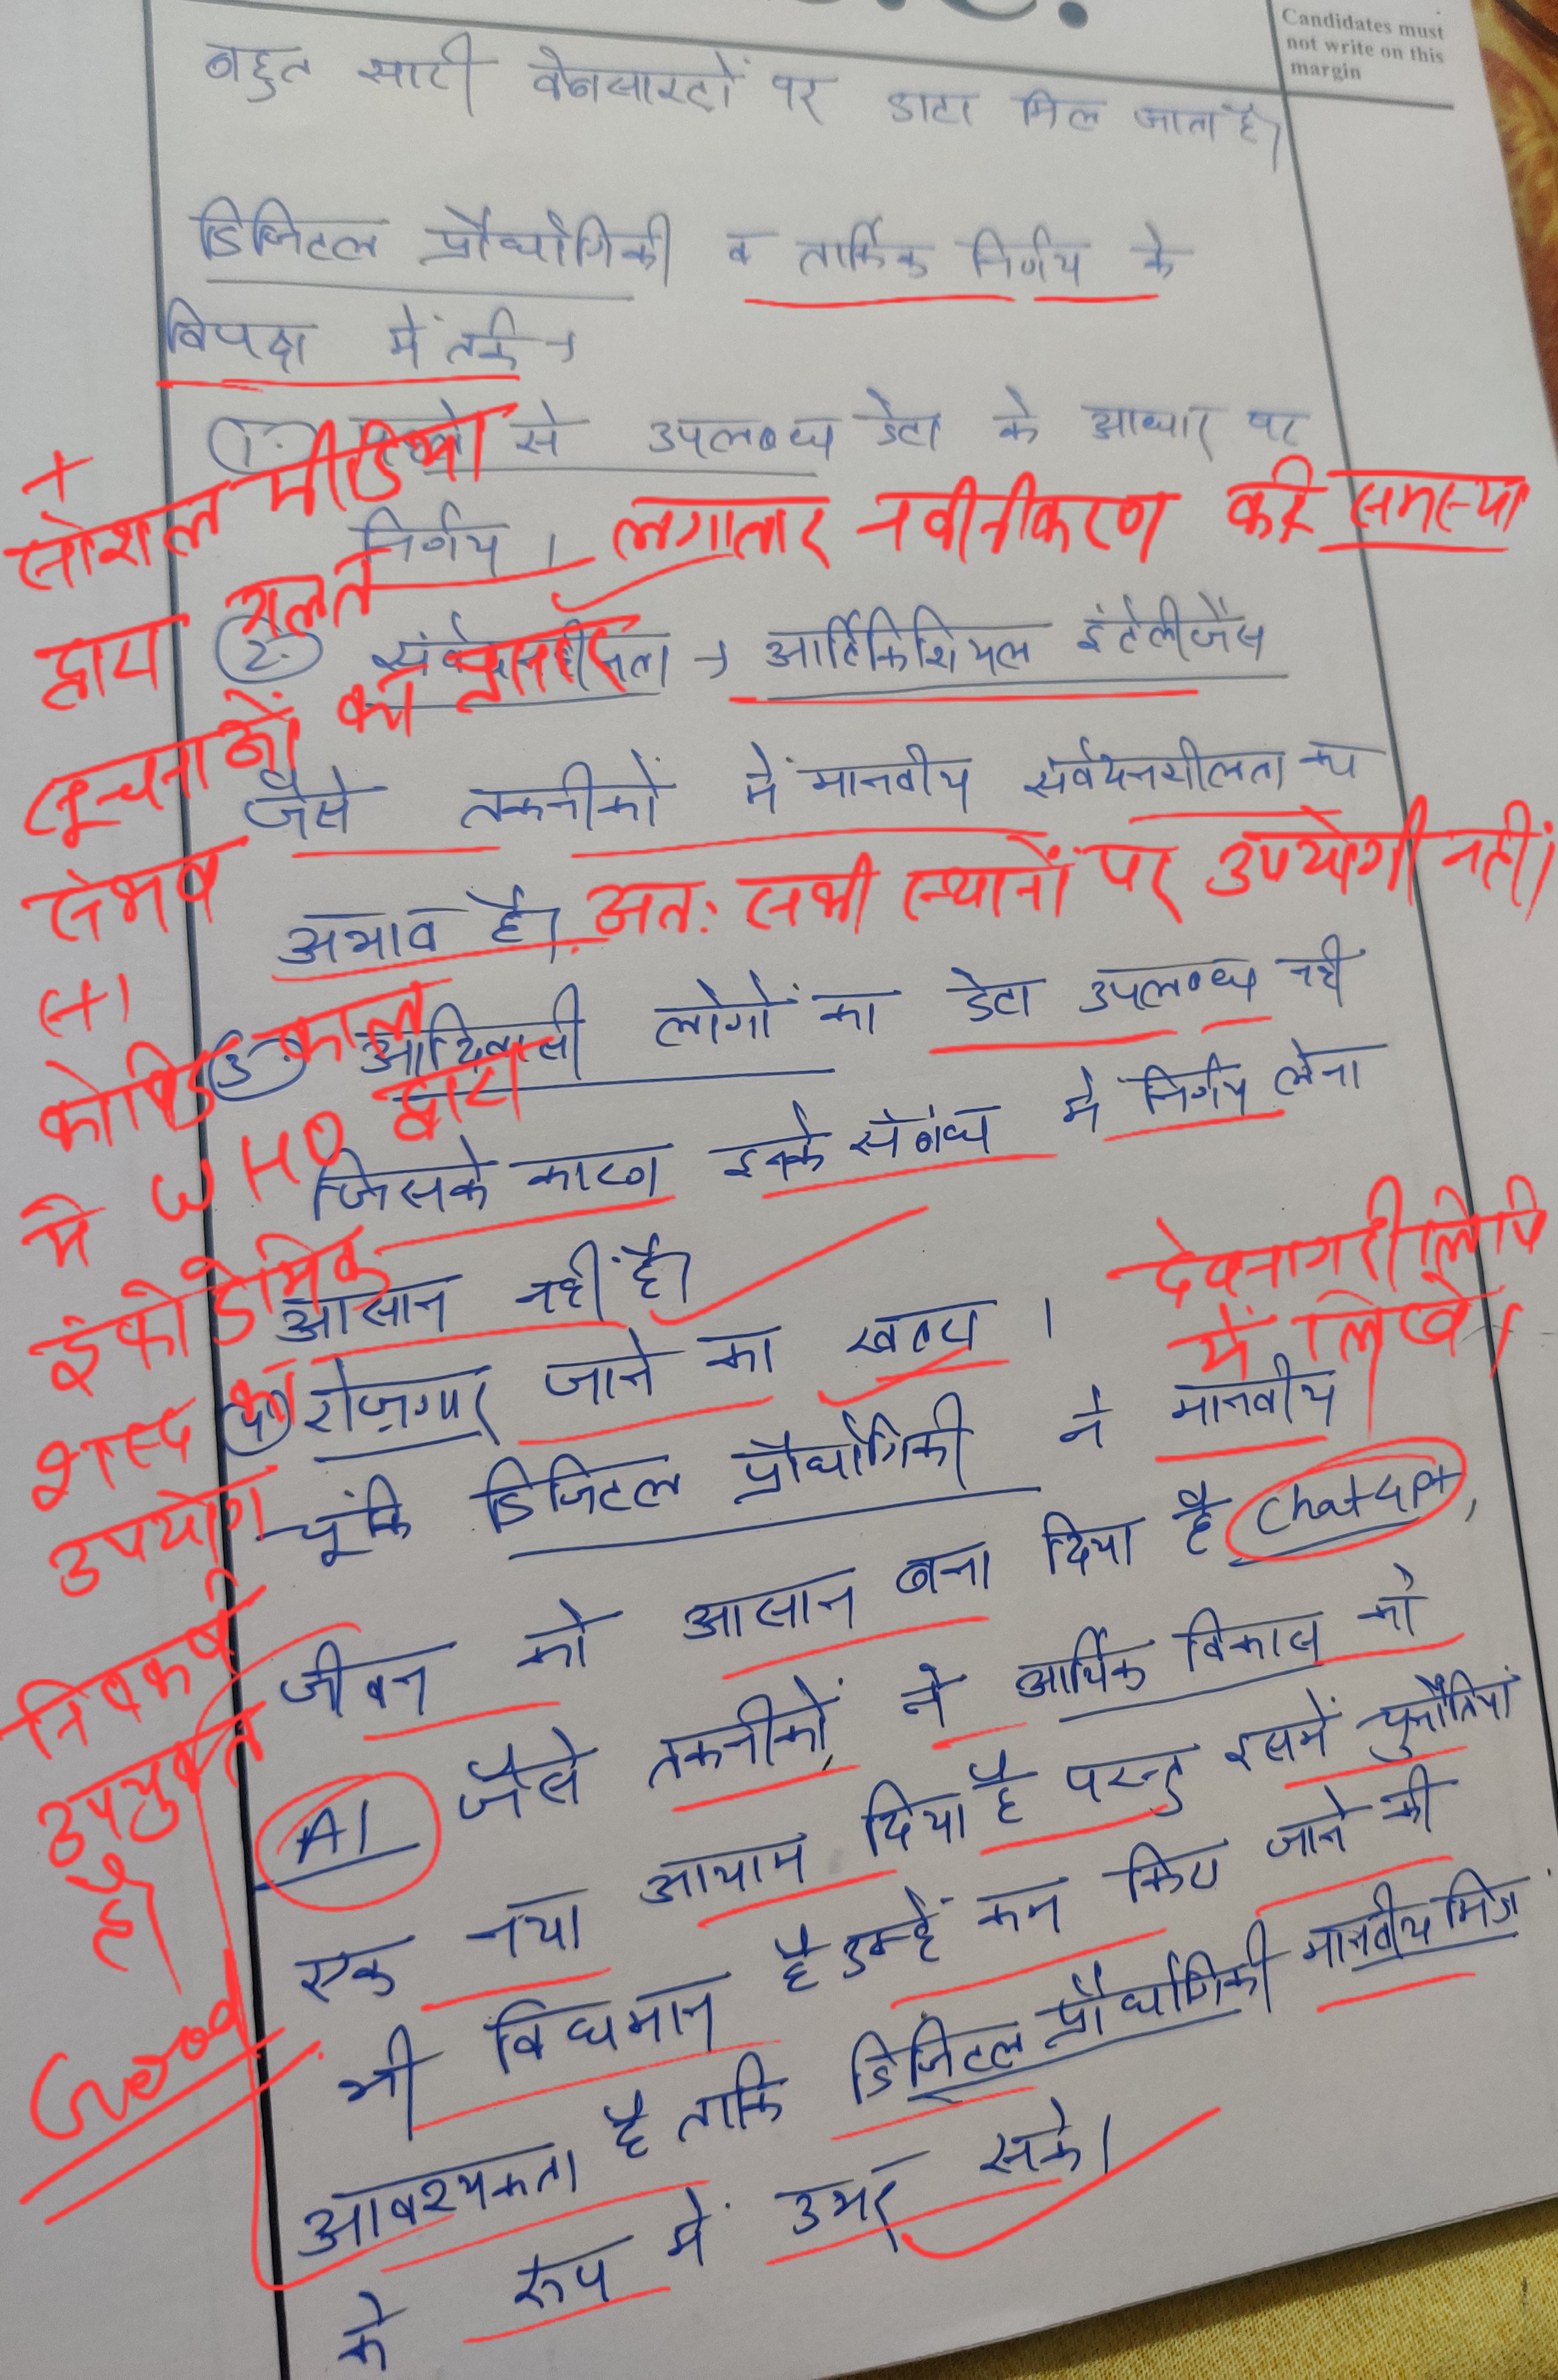 Candidates must
not write on this
margin
बहुत सारी वेबसाइटों पर डाटा मिल जाता है।
डिजिटल प्रौद्योगिकी व तार्किक निर्णय के
विपक्ष में तर्क →
1. पहले से उपलब्ध डेटा के आधार पर
निर्णय । लगातार नवीनीकरण की समस्या
2. संवेदनशीलता → आर्टिफिशियल इंटेलीजेंस
जैसे तकनीकों में मानवीय संवेदनशीलता का
अभाव है। अतः सभी स्थानों पर उपयोगी नहीं।
3. आदिवासी लोगों का डेटा उपलब्ध नही
जिसके कारण इनके संबंध में निर्णय लेना
आसान नहीं है।
रोज़गार जाने का खतरा ।
देवनागरी लिपि
में लिखें।
चूंकि डिजिटल प्रौद्योगिकी ने मानवीय
जीवन को आसान बना दिया है Chatgpt,
AI जैसे तकनीकों ने आर्थिक विकास को
एक नया आयाम दिया है परन्तु इसमें चुनौतियां
भी विधमान है इन्हें कम किए जाने की
आवश्यकता है ताकि डिजिटल प्रौद्योगिकी मानवीय मित्र
के रूप में उभर सके।
+
सोशल मीडिया
द्वारा गलत
सूचनाओं का प्रसार
संभव
(+)
कोविड काल
में WHO द्वारा
इंफोडेमिक
शब्द का
उपयोग
निष्कर्ष
उपयुक्त
है।
Good